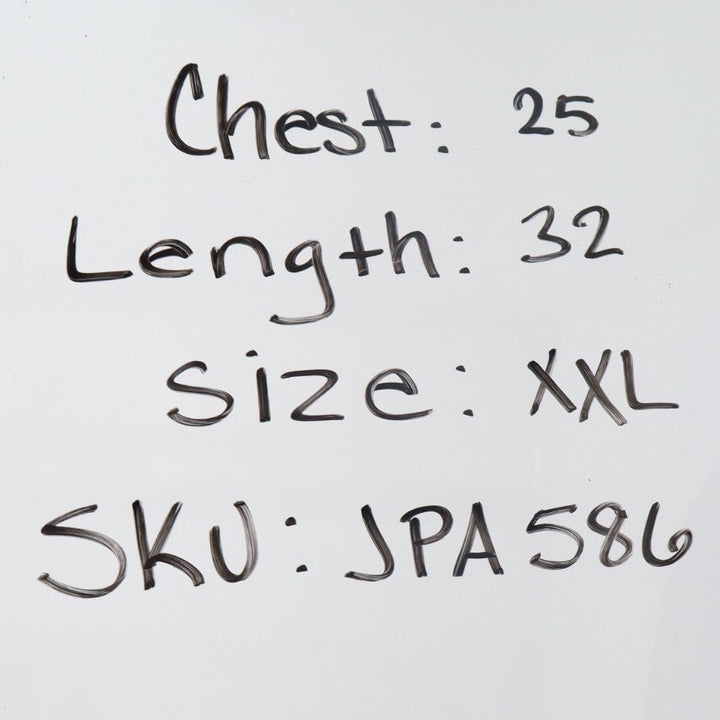 Chest: 25
Length: 32
Size: XXL
SKU: JPA586